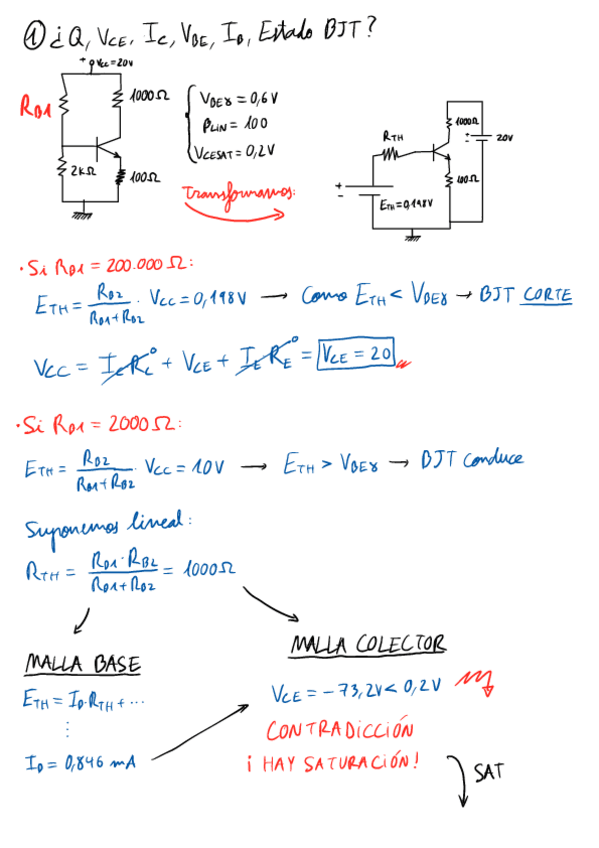 ① ¿Q, VCE, IC, VBE, IB, Estado BJT?
+ VCC=20V
RB1
1000Ω
2KΩ
100Ω
VBEγ = 0,6 V
βLIN = 100
VCESAT = 0,2V
Transformamos:
RTH
1000Ω
+
-
20V
100Ω
+
-
ETH=0,198V
· Si RB1 = 200.000 Ω:
ETH = RB2 / (RB1+RB2) · VCC = 0,198V → Como ETH < VBEγ → BJT CORTE
VCC = ICRC⁰ + VCE + IERE⁰ = VCE = 20
· Si RB1 = 2000 Ω:
ETH = RB2 / (RB1+RB2) · VCC = 10V → ETH > VBEγ → BJT conduce
Suponemos lineal:
RTH = (RB1·RB2) / (RB1+RB2) = 1000Ω
MALLA BASE
MALLA COLECTOR
ETH = IB·RTH + ...
VCE = -73,2V < 0,2V
⋮
CONTRADICCIÓN
IB = 0,846 mA
¡HAY SATURACIÓN!
SAT